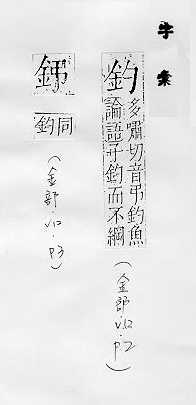 字彙
釣
多嘯切音弔釣魚
論語子釣而不綱
(金部.V12.P2)
同釣
(金部.V12.P3)